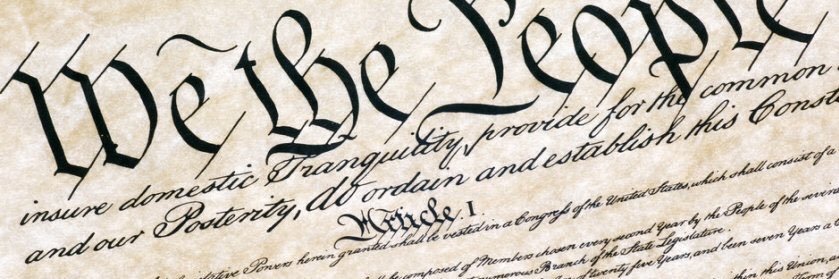 We the People
insure domestic Tranquility, provide for the common
and our Posterity, do ordain and establish this Const
Article. I.
Powers herein granted shall be vested in a Congress of the United States, which shall consist of a
be composed of Members chosen every second Year by the People of the several
Branch of the State Legislature.
of twenty five Years, and been seven Years a
this Union,